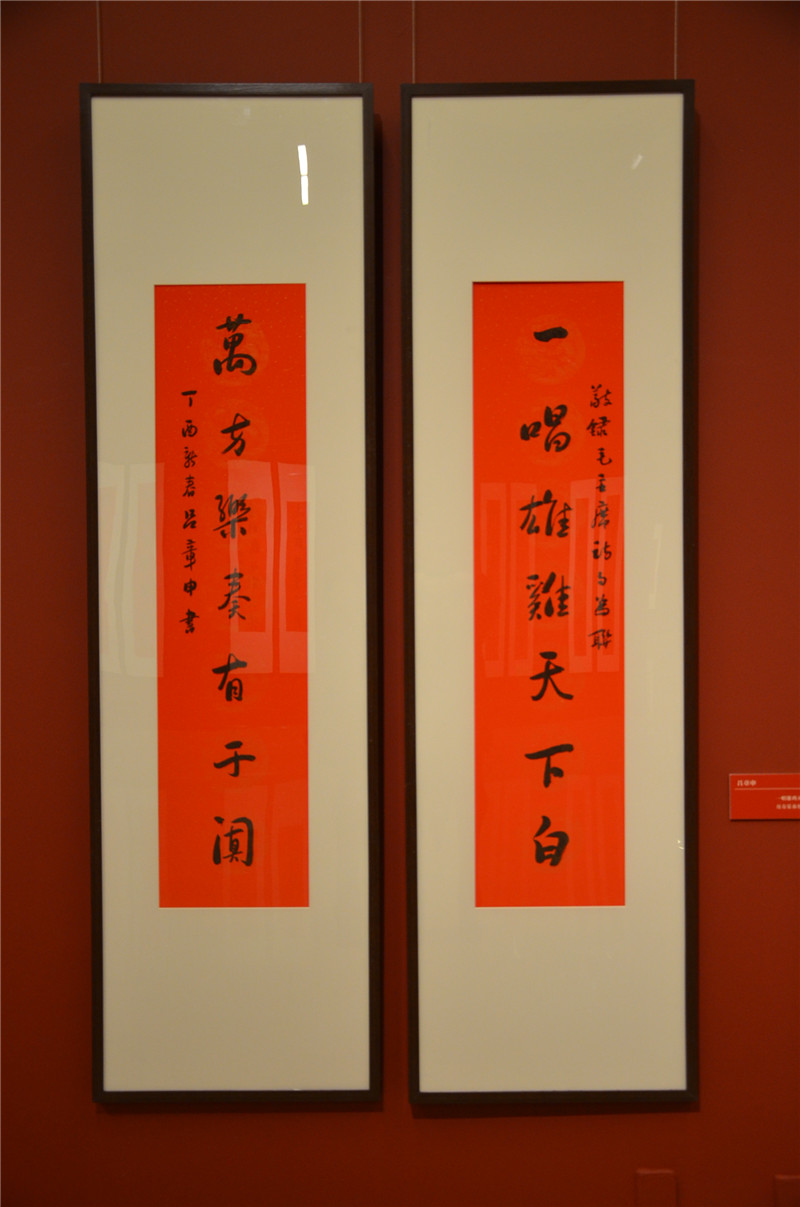 一唱雄雞天下白
敬録毛主席詩句為聯
萬方樂奏有于闐
丁酉新春呂章申書
吕章申